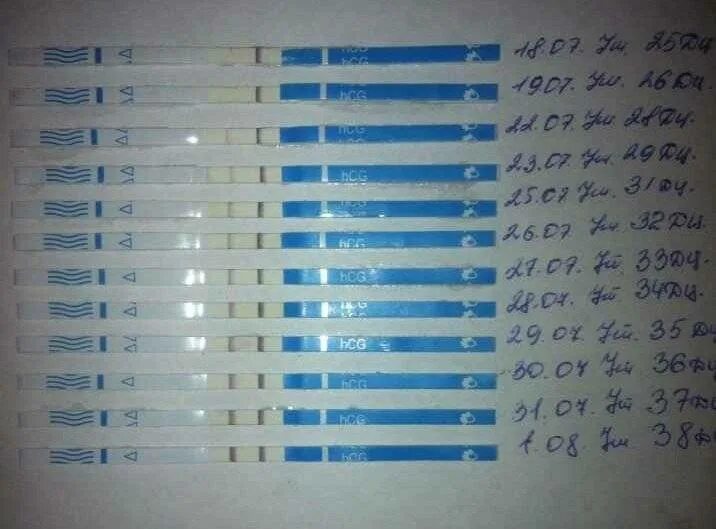 hCG 18.07. Ут. 25ДЦ
hCG 19.07. Ут. 26ДЦ.
hCG 22.07. Ут 28ДЦ.
hCG 23.07. Ут. 29ДЦ.
hCG 25.07 Ут. 31ДЦ
hCG 26.07. Ут. 32ДЦ.
hCG 27.07. Ут 33ДЦ.
hCG 28.07. Ут 34ДЦ.
hCG 29.07. Ут. 35ДЦ
hCG 30.07 Ут 36ДЦ
hCG 31.07. Ут 37ДЦ
hCG 1.08. Ут. 38ДЦ